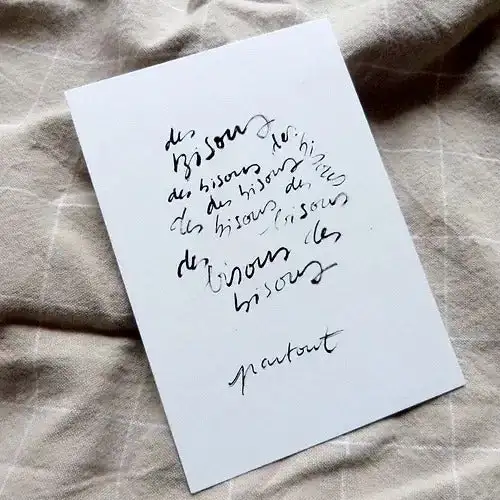 des
Bisous
des bisous des bisous
des des bisous
des bisous des bisous
des bisous des
bisous
partout